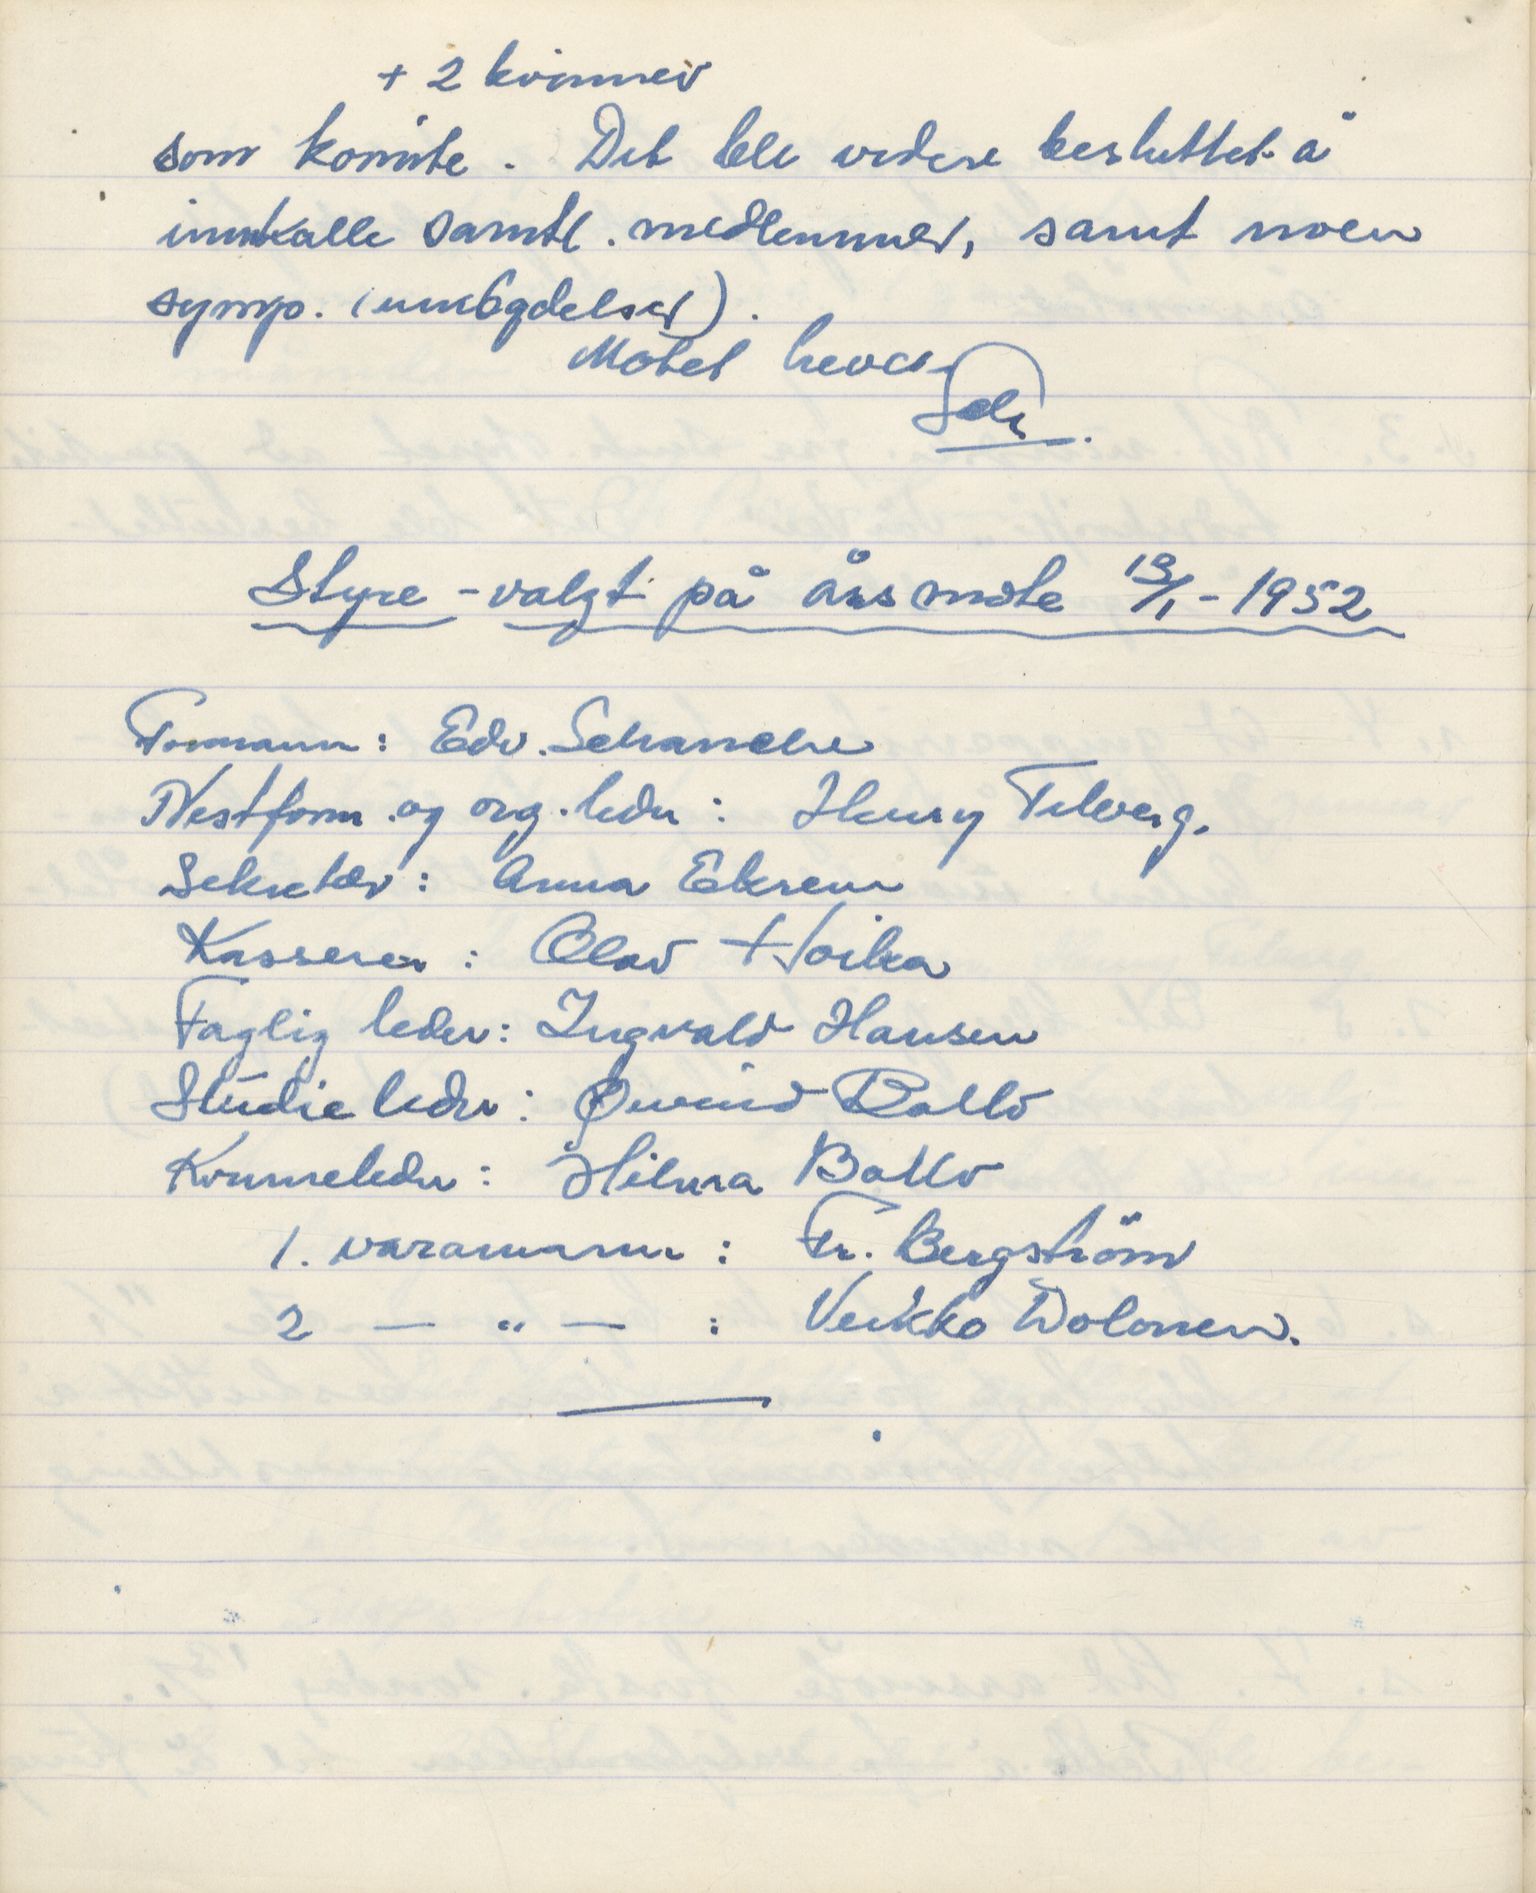 + 2 kvinner
som komite. Det ble videre besluttet å
innkalle samtl. medlemmer, samt noen
symp. (innbydelser).
Møtet hevet.
Sch.
Styre - valgt på årsmøte 13/1 - 1952
Formann: Edv. Schanche
Nestform. og org. leder: Henry Tilberg.
Sekretær: Anna Eksrem
Kasserer: Olav Hoika
Faglig leder: Ingvald Hansen
Studieleder: Øivind Ballo
Kvinneleder: Hilma Ballo
1. varamann: Fr. Bergström
2 — " — : Veikko Tolonen.